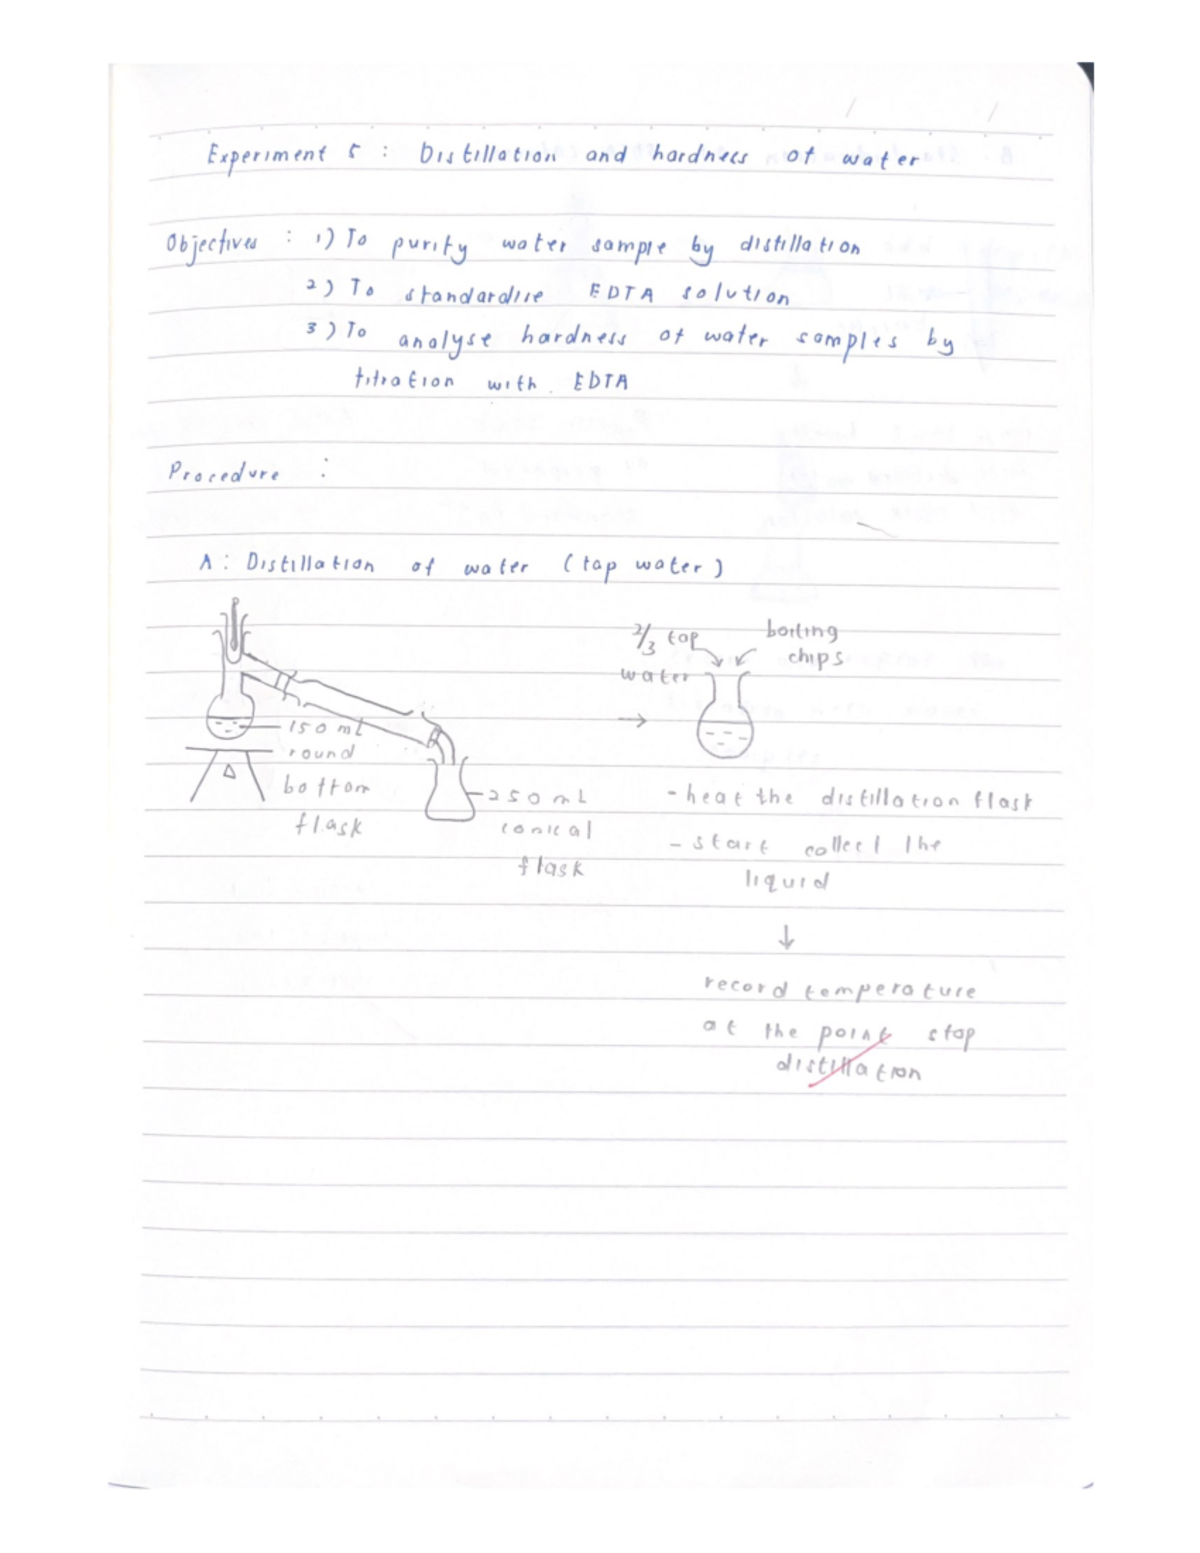 Experiment 5 : Distillation and hardness of water
Objectives : 1) To purify water sample by distillation
2) To standardise EDTA solution
3) To analyse hardness of water samples by
titration with EDTA
Procedure :
A : Distillation of water (tap water)
150 mL
round
bottom
flask
250 mL
conical
flask
→
2/3 tap
water
boiling
chips
- heat the distillation flask
- start collect the
liquid
↓
record temperature
at the point stop
distillation